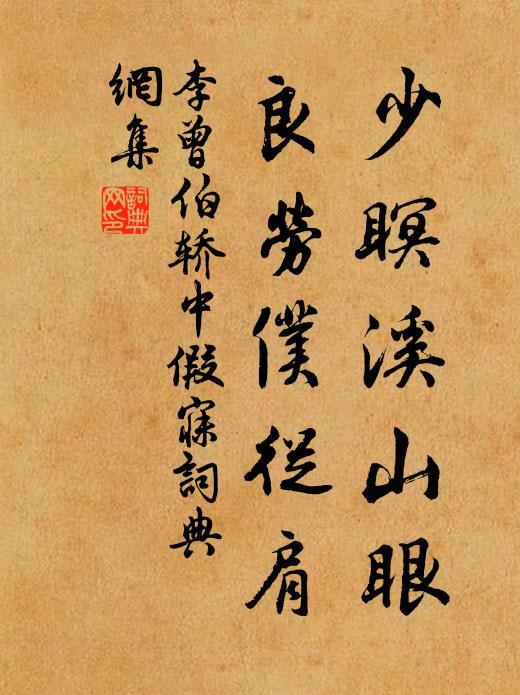 少瞑溪山眼
良劳僕從肩
李曾伯轿中假寐詞典
網集
詞典
网印